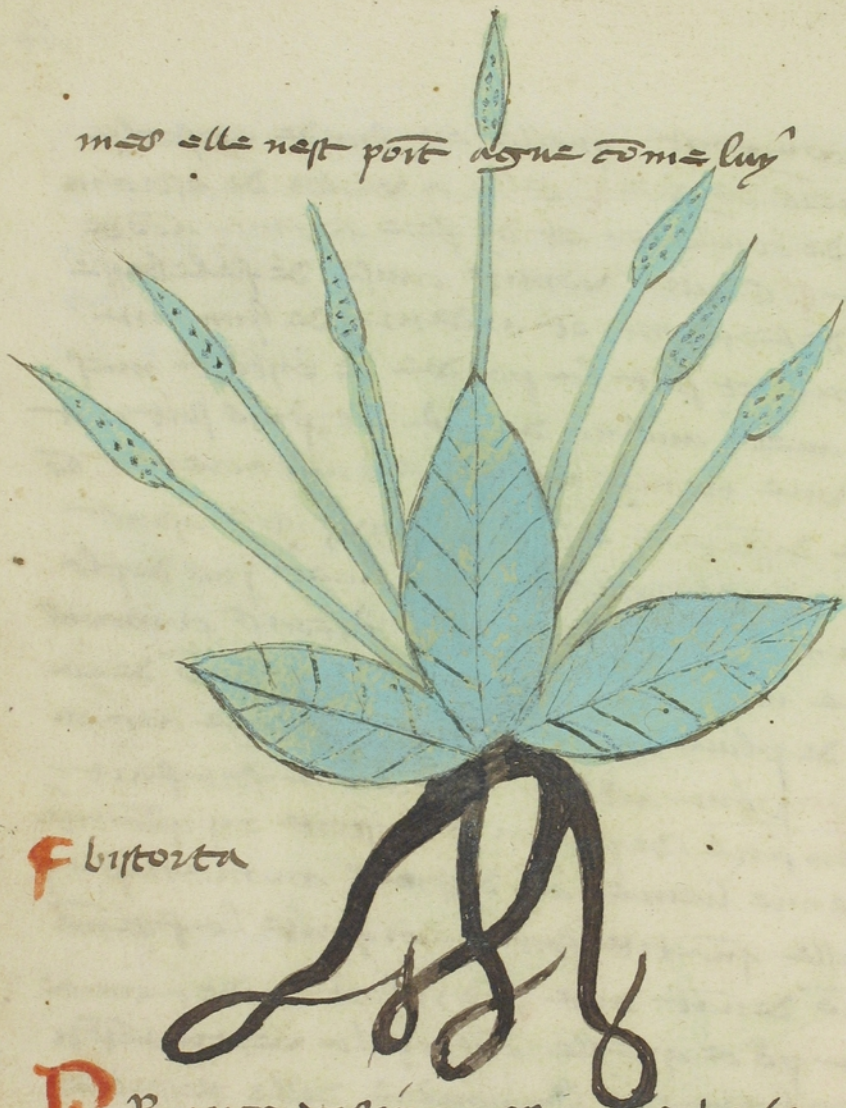 mes elle nest poīt ague cōme luy
bistorta